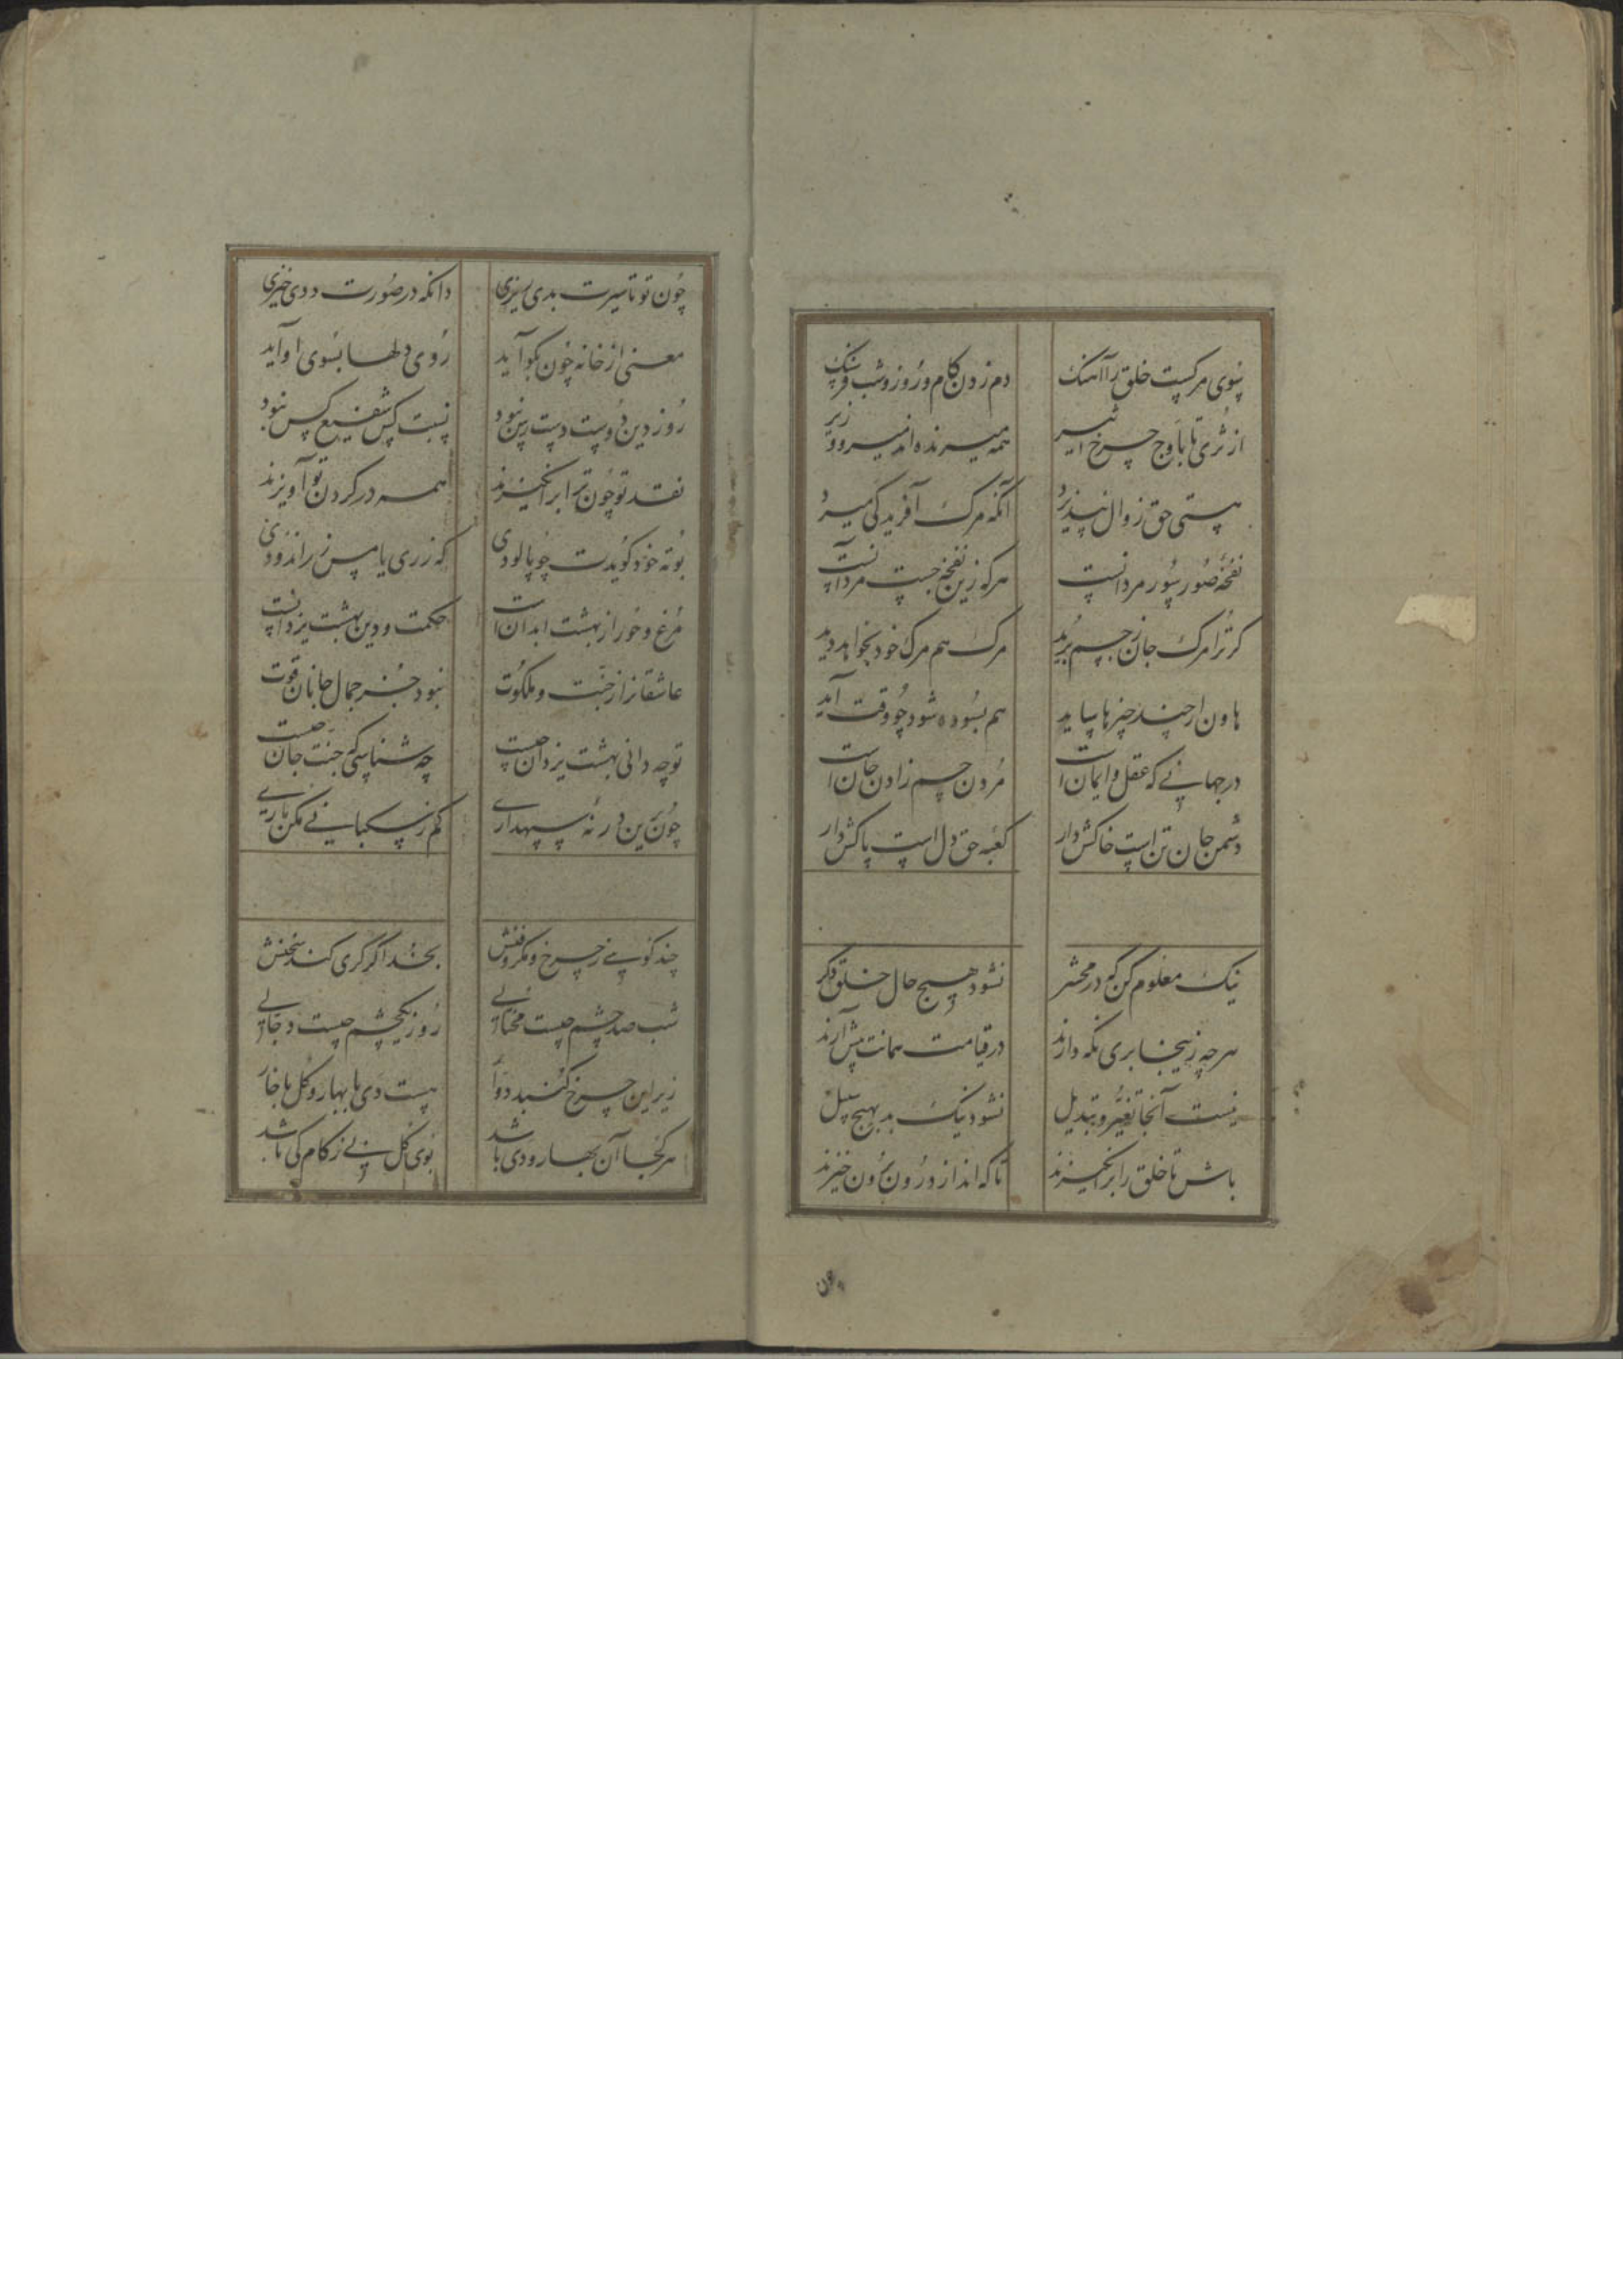 بسوی مرکست خلق را آهنک دم زدن کام و روز و شب فرسنک
از ثری تا باوج چرخ اثیر همه میرنده اند میر و وزیر
هستی حق زوال نپذیرد آنکه مرک آفرید کی میرد
نفخهٔ صور سور مردانست هرکه زین نفخه جست مرد آنست
کر ترا مرک جان ز جسم برید مرک هم مرک خود بخواهد دید
هاون ار چند چیزها ساید هم بسوده شود چو وقت آید
در جهانی که عقل و ایمان است مردن جسم زادن جان است
دشمن جان تن است خاکش دار کعبه حق دل است پاکش دار
نیک معلوم کن که در محشر نشود هیچ حال خلق دکر
هرچه زینجا بری نکه دارند در قیامت همانت پیش آرند
نیست آنجا تغیر و تبدیل نشود نیک بد بهیچ سبیل
باش تا خلق را برانکیزند تا که انداز درون برون خیزند
چون
چون تو تا سیرت بدی سیزی دانکه در صورت ددی خیزی
معنی از خانه چون بکو آید روی دلها بسوی او آید
روز دین دوست دست رس نبود نسبت کس شفیع کس نبود
نقد تو چون ترا برانکیزند همه در کردن تو آویزند
بوته خود کویدت چو پالودی که زری یا مس زراندودی
مرغ و خور از بهشت ابدان است حکمت و دین بهشت یزدانست
عاشقانرا ز جنت و ملکوت نبود جز جمال جانان قوت
تو چه دانی بهشت یزدان چیست چه شناسی که جنت جان چیست
چون برین در نهٔ سپهداری کم ز سکبانی مکن باری
چند کویی ز چرخ و مکر و فنش بخدا اکر کری کند سخنش
شب صد چشم چیست محتالی روز یکچشم چیست دجالی
زیر این چرخ کنبد دوار هست دی با بهار و کل با خار
هر کجا آن بهار و دی باشد بوی کل بی زکام کی باشد